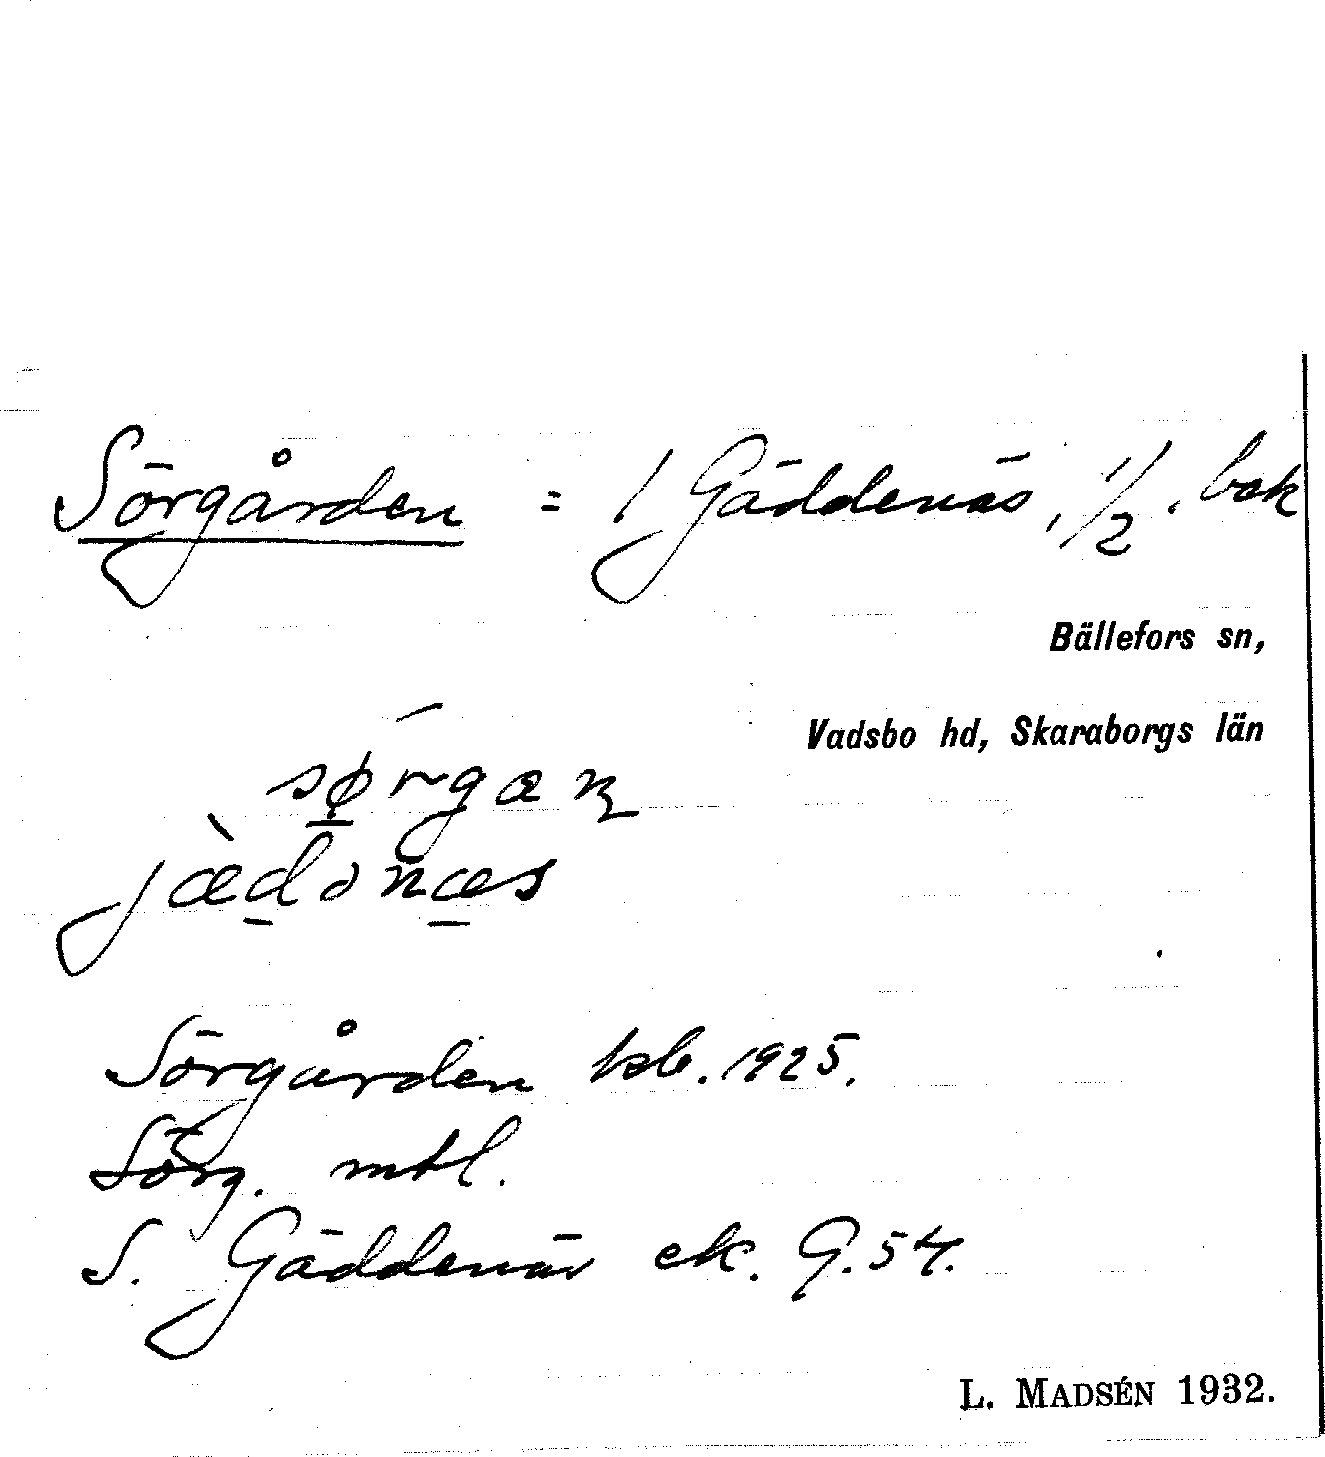 Sörgården = 1 Gäddenäs, 1/2. bok
Bällefors sn,
Vadsbo hd, Skaraborgs län
sørgæɳ
jæ̀dənæs
Sörgården ksb. 1925.
Sörg. mtl.
S. Gäddenäs ek. 9.54.
L. MADSÉN 1932.